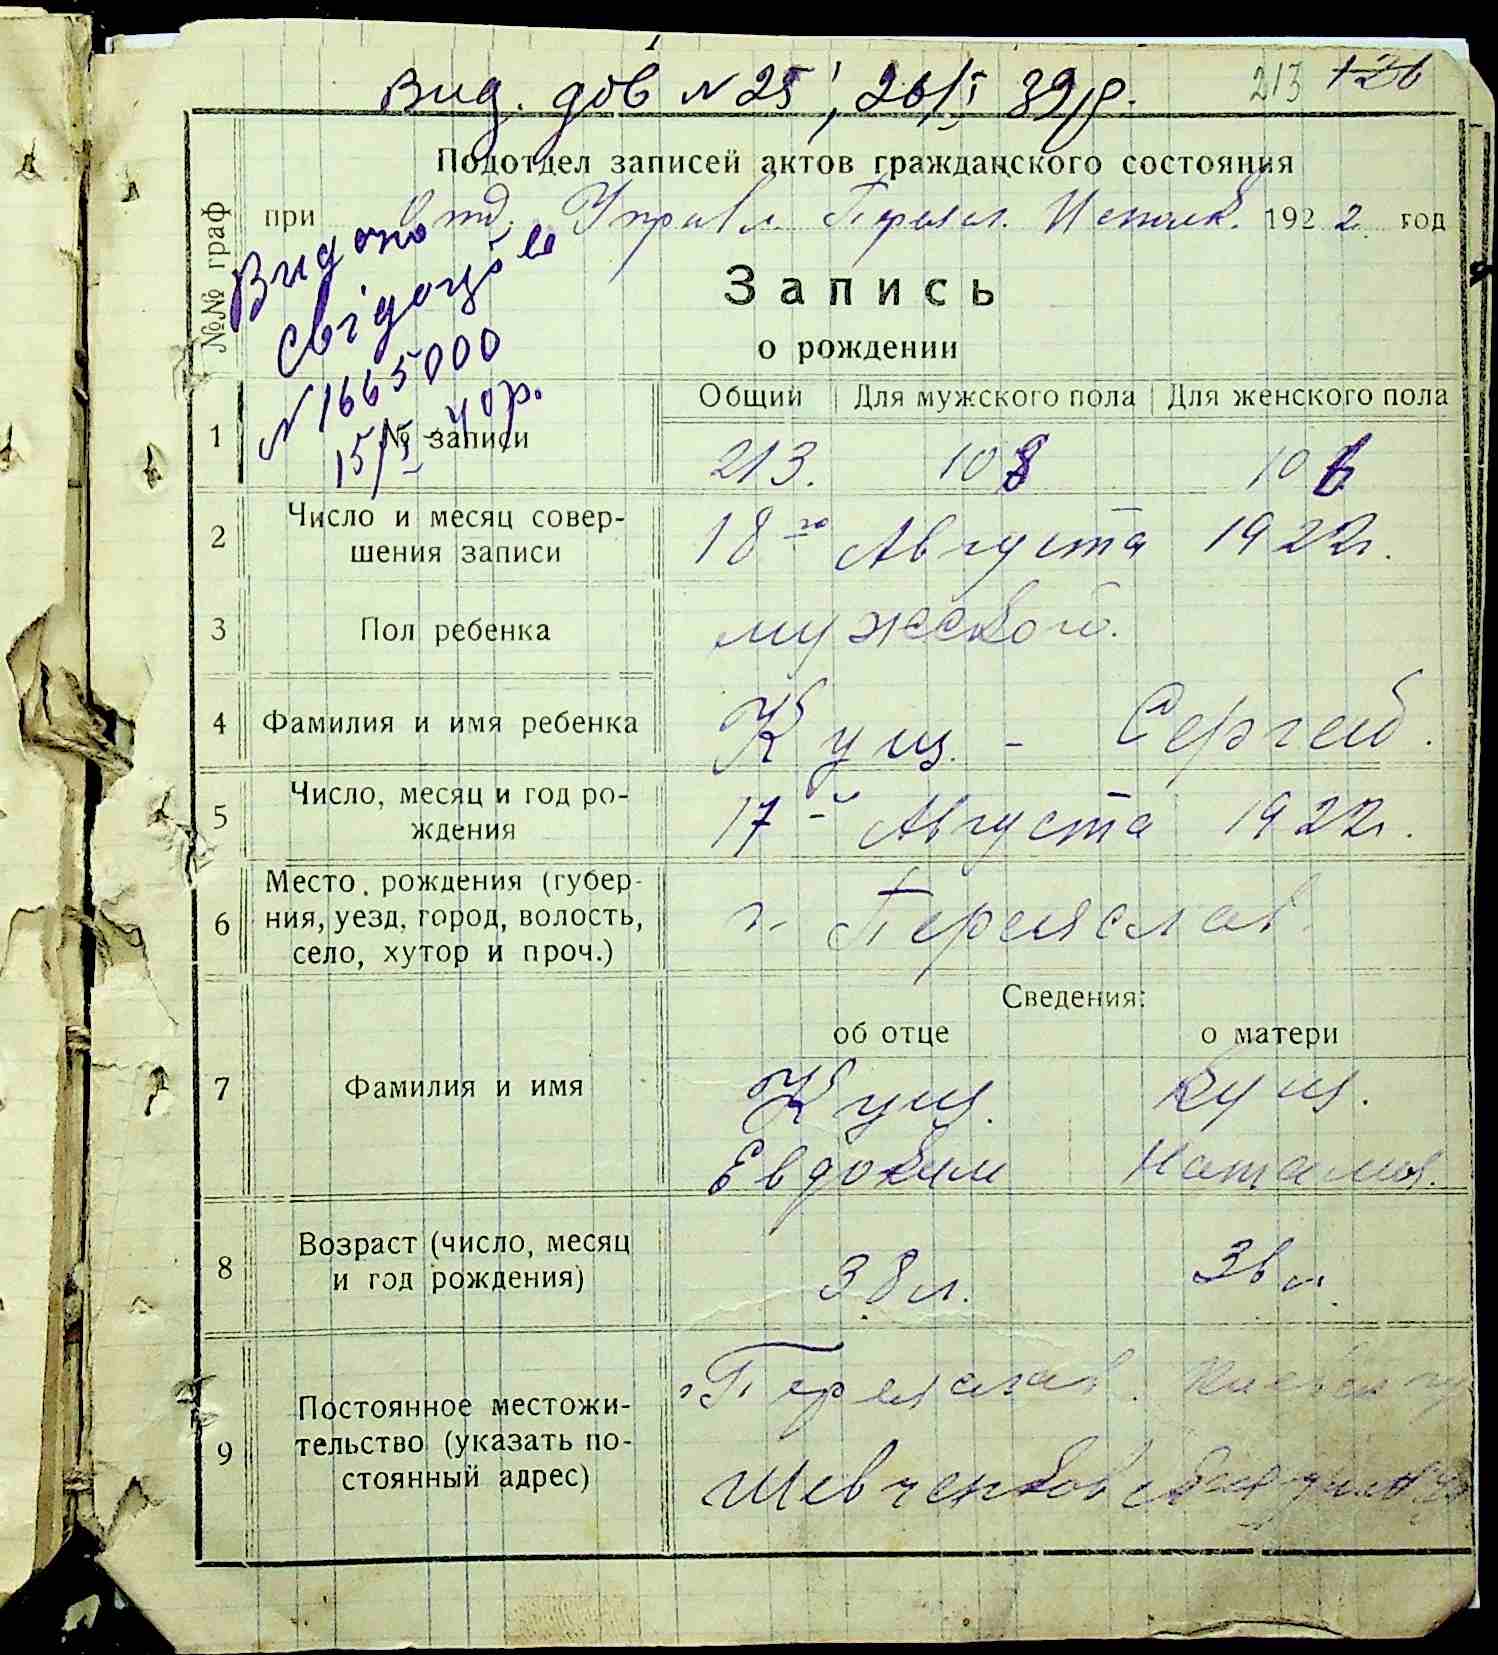 Вид. дов N 25, 26/I 39р.
213 126
Подотдел записей актов гражданского состояния
при Отд. Управл. Переясл. Исполк. 1922 год
Видано
свідоцтво
N 1665000
15/I 40р.
№№ граф
Запись
о рождении
Общий Для мужского пола Для женского пола
1 № записи 213. 108 106
2 Число и месяц совер-
шения записи 18го Августа 1922г.
3 Пол ребенка мужеской.
4 Фамилия и имя ребенка Кущ. - Сергей.
5 Число, месяц и год ро-
ждения 17-й Августа 1922г.
6 Место рождения (губер-
ния, уезд, город, волость,
село, хутор и проч.) г. Переяслав.
Сведения:
об отце о матери
7 Фамилия и имя Кущ. Кущ.
Евдоким Наталия.
8 Возраст (число, месяц
и год рождения) 38 л. 36 л.
9 Постоянное местожи-
тельство (указать по-
стоянный адрес) г. Переяслав.
Шевченковская улица